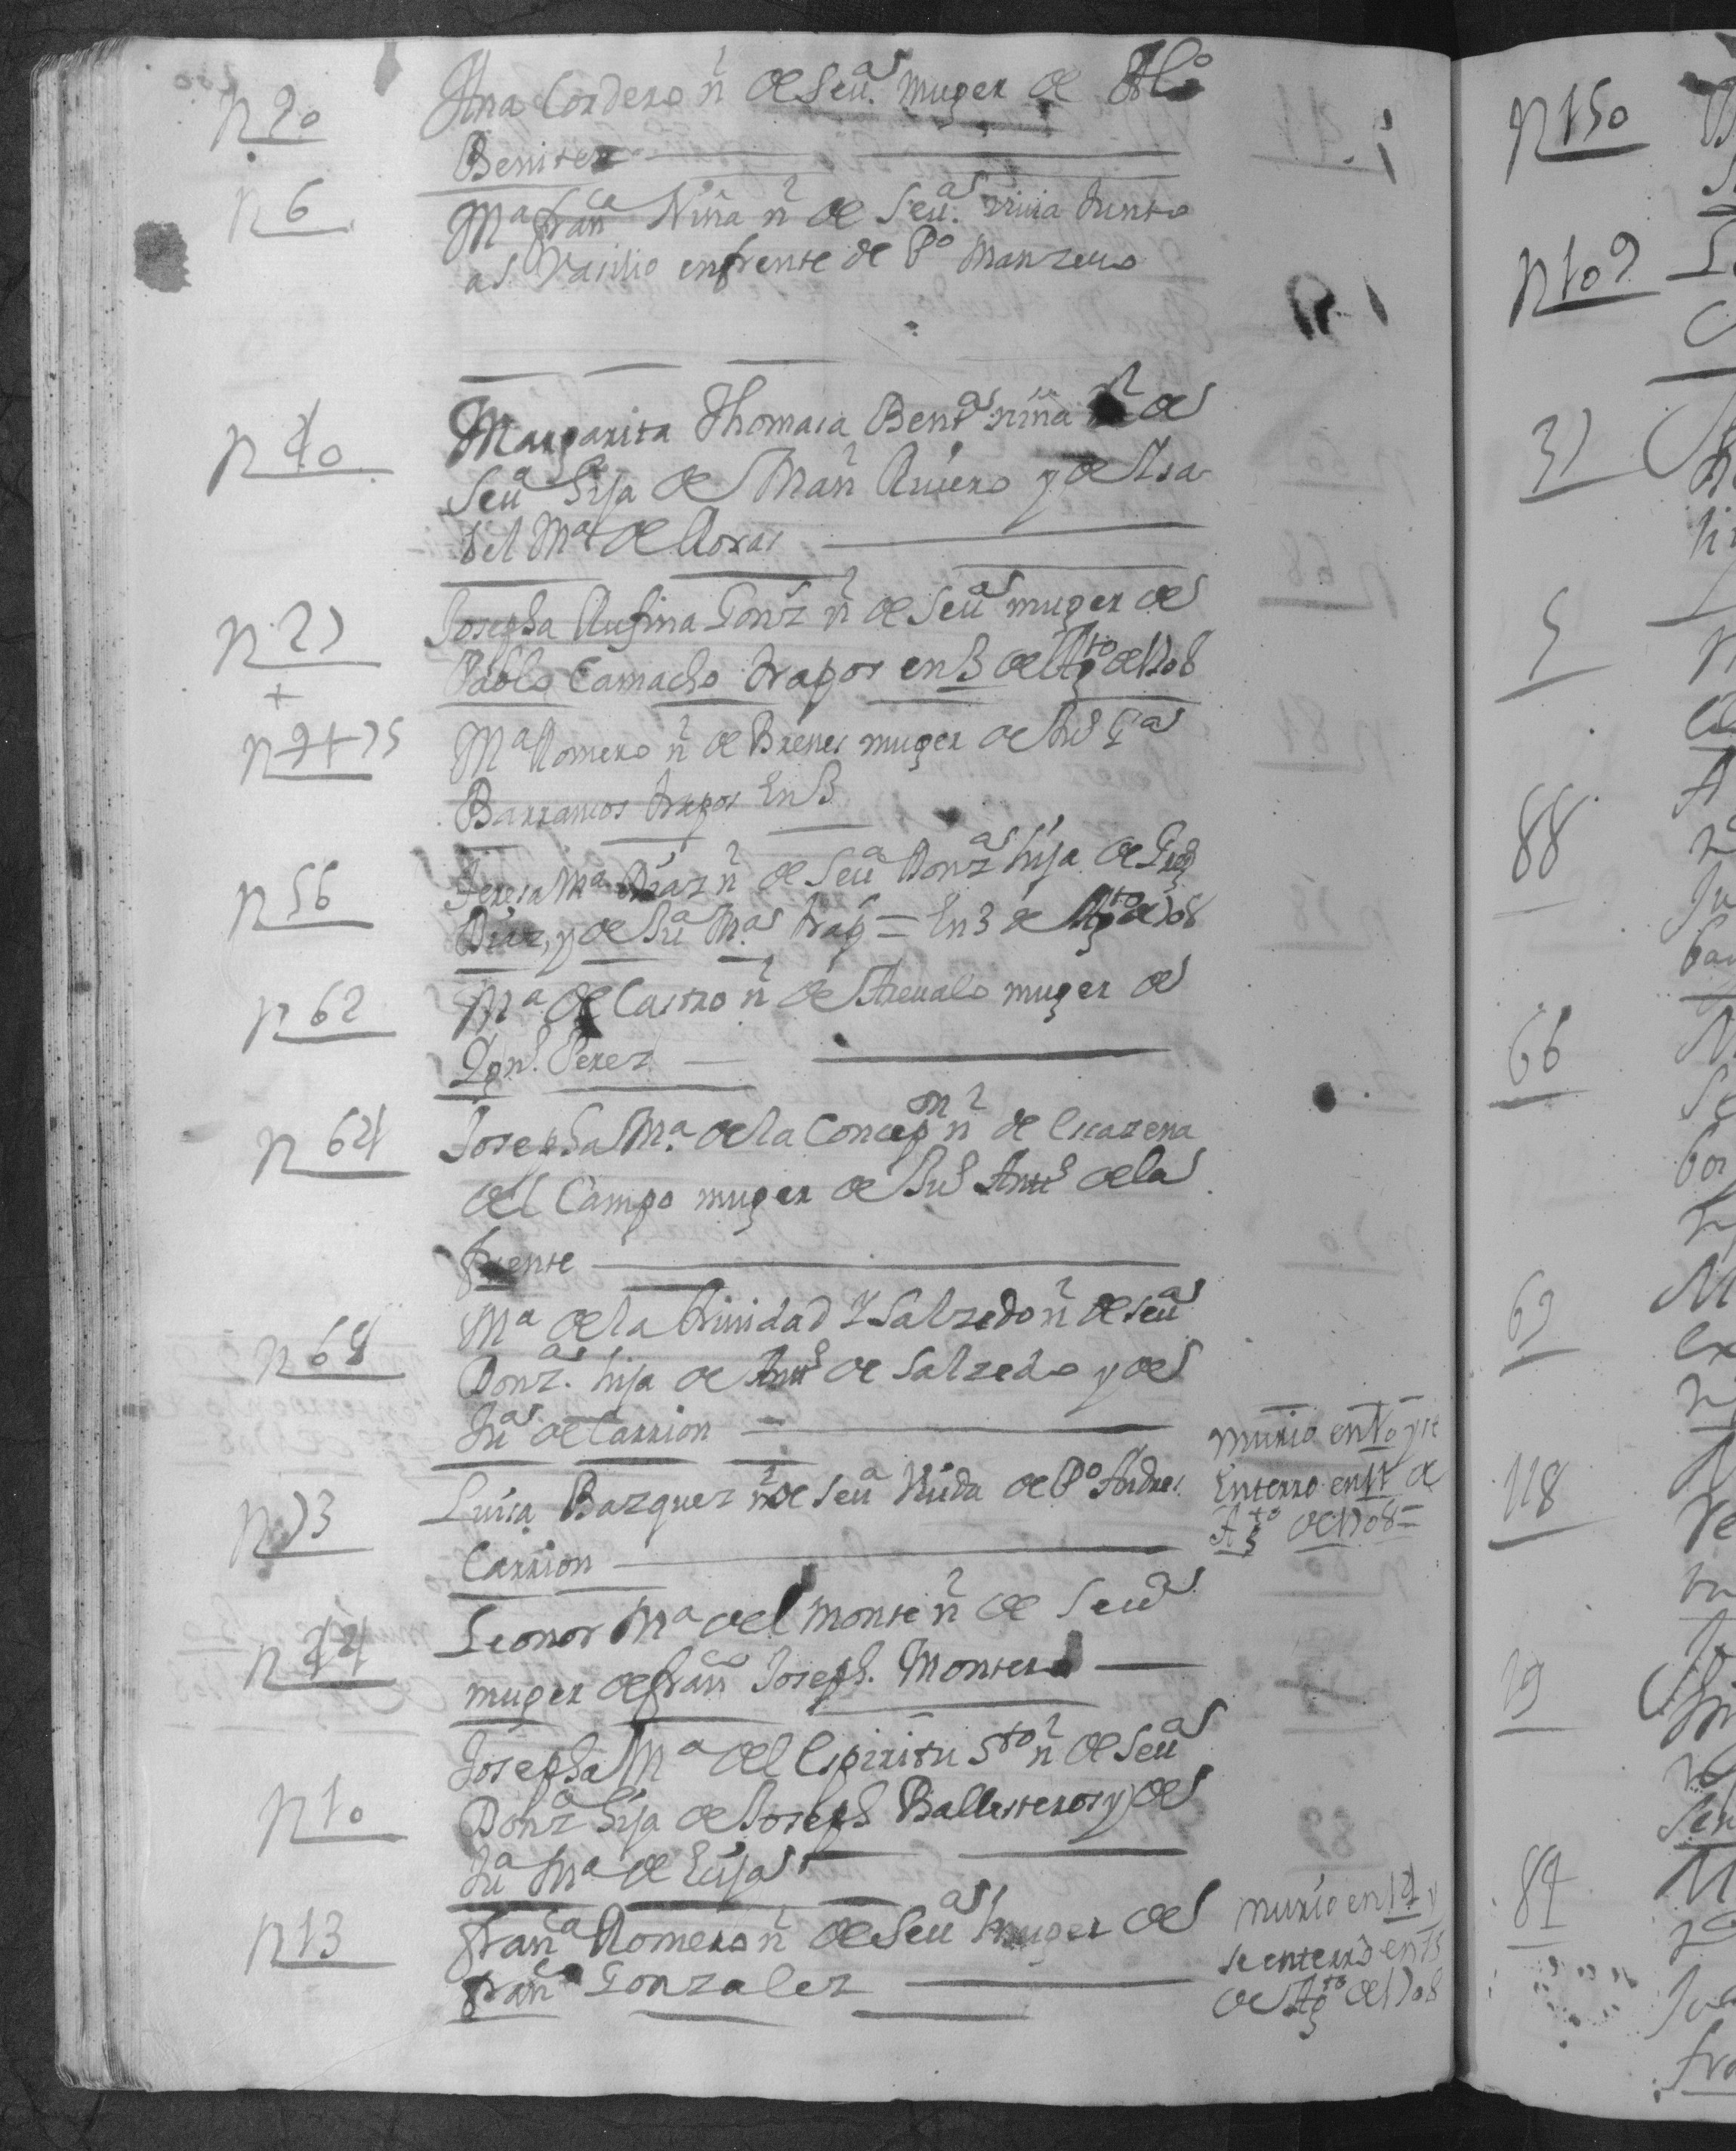 n 90 Ana Cordero nl de Seua. muger de Alo
Benitez
n 6 Ma franca Niña nl de Seua. viuia Junto
a S. Vasilio enfrente de Po Manzeuo
n 40 Margarita Thomasa Benta niña nl de
Seua hija de Manl Riuero y de Isa
bel Ma de Roxas
n 27 Josepha Rufina Gonz nl de Seua muger de
Pablo Camacho trapos en 3 de Agto de 1708
n 9475 Ma Romero nl de Brenes muger de Juo Ga
Barrancos trapos En 3
n 56 Teresa Ma Diaz nl de Seua Donza hija de Greg
Diaz, y de Jua Ma trap = En 3 de Agto de 708
n 62 Ma de Castro nl de Areualo muger de
Gonl. Perez
n 64 Josepha Ma. de la Concepon nl de Escazena
del Campo muger de Juo Anto de la
fuente
n 68 Ma de la trinidad Y Salzedo nl de seua
Donza. hija de Anto de Salzedo y de
Jua de Carrion
n 73 Luisa Bazquez nl de Seua Viuda de Po Andres
Carrion
murio en 10 y se
Enterro en 11 de
Agto de 1708 =
n 44 Leonor Ma del Monte nl de Seua
muger de franco Joseph. Montero
n 10 Josepha Ma del Espiritu Sto nl de Seua
Donza hija de Joseph Ballesteros y de
Jua Ma de Ecija
n 13 franca Romero nl de Seua Muger de
franco Gonzalez
murio en 14 y
se enterro en 15
de Agto de 1708
n 150
n 109
31
5
88
66
69
118
19
84